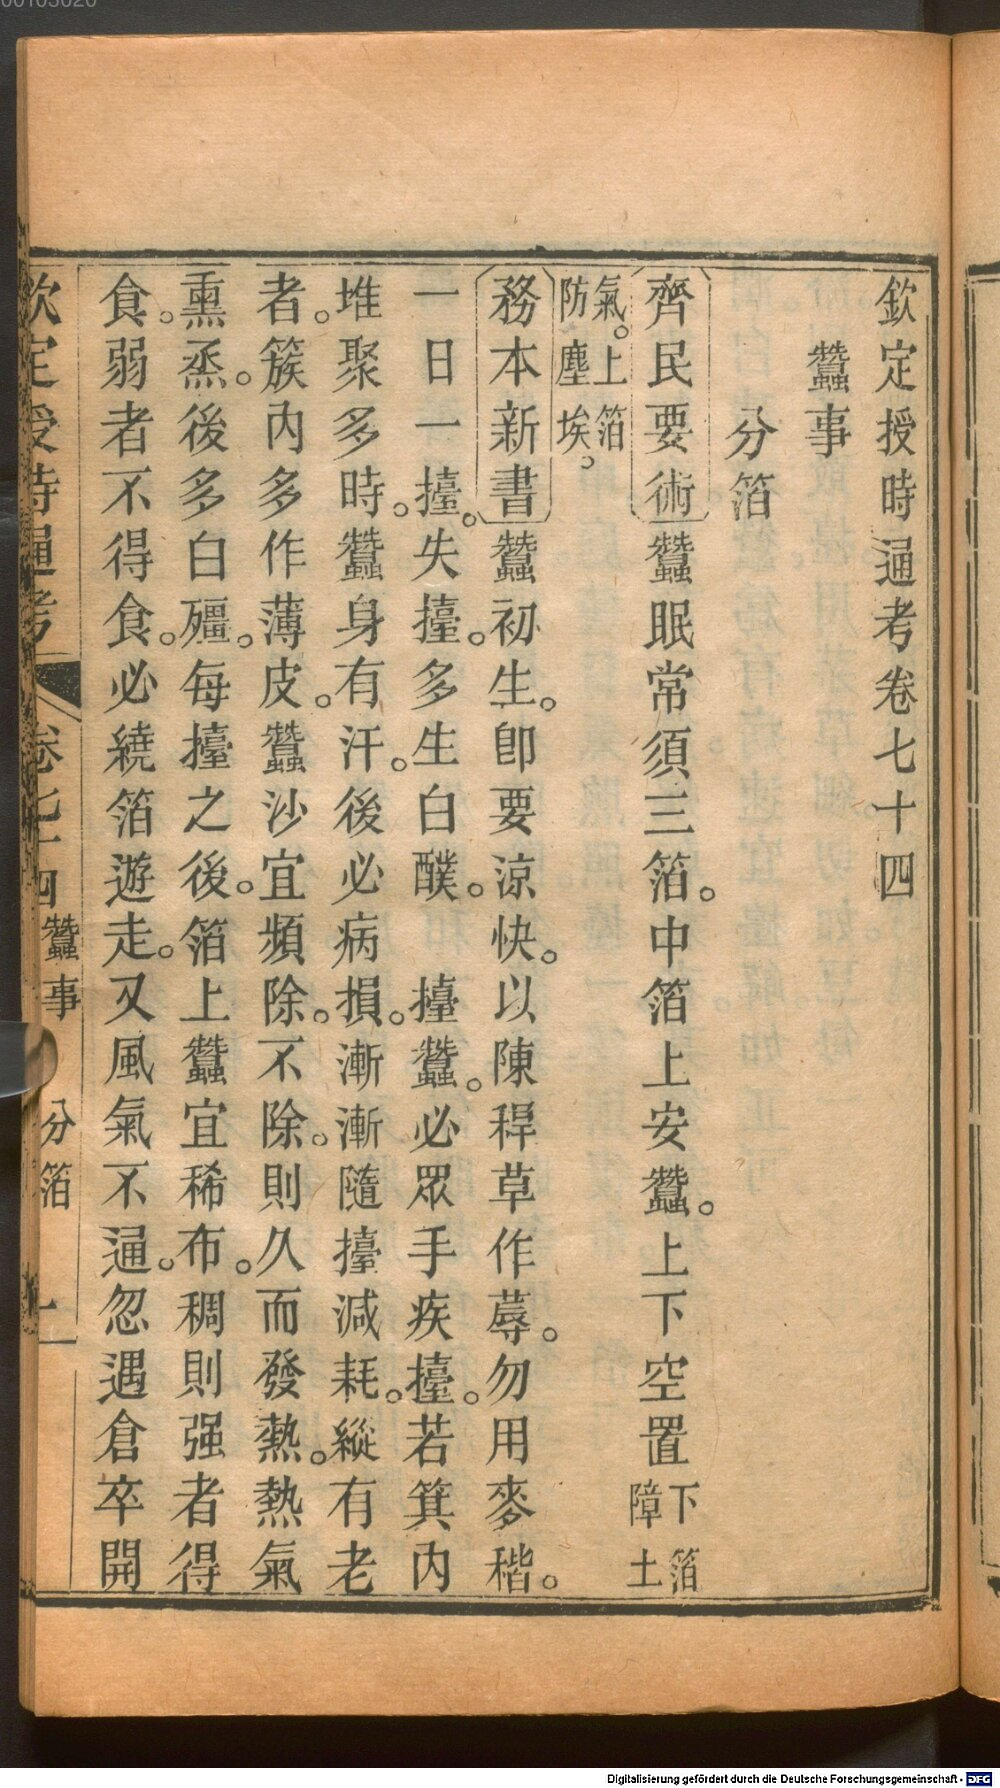 欽定授時通考卷七十四
蠶事
分箔
齊民要術蠶眠常須三箔。中箔上安蠶。上下空置下箔障土
氣。上箔防塵埃。
務本新書蠶初生。卽要涼快。以陳稈草作蓐。勿用麥稭。
一日一擡。失擡。多生白醭。擡蠶。必眾手疾擡。若箕內
堆聚多時。蠶身有汗。後必病損。漸漸隨擡減耗。縱有老
者。簇內多作薄皮。蠶沙宜頻除。不除。則久而發熱。熱氣
熏烝。後多白殭。每擡之後。箔上蠶宜稀布。稠則强者得
食。弱者不得食。必繞箔遊走。又風氣不通。忽遇倉卒開
欽定授時通考 卷七十四 蠶事 分箔 一
Digitalisierung gefördert durch die Deutsche Forschungsgemeinschaft - DFG